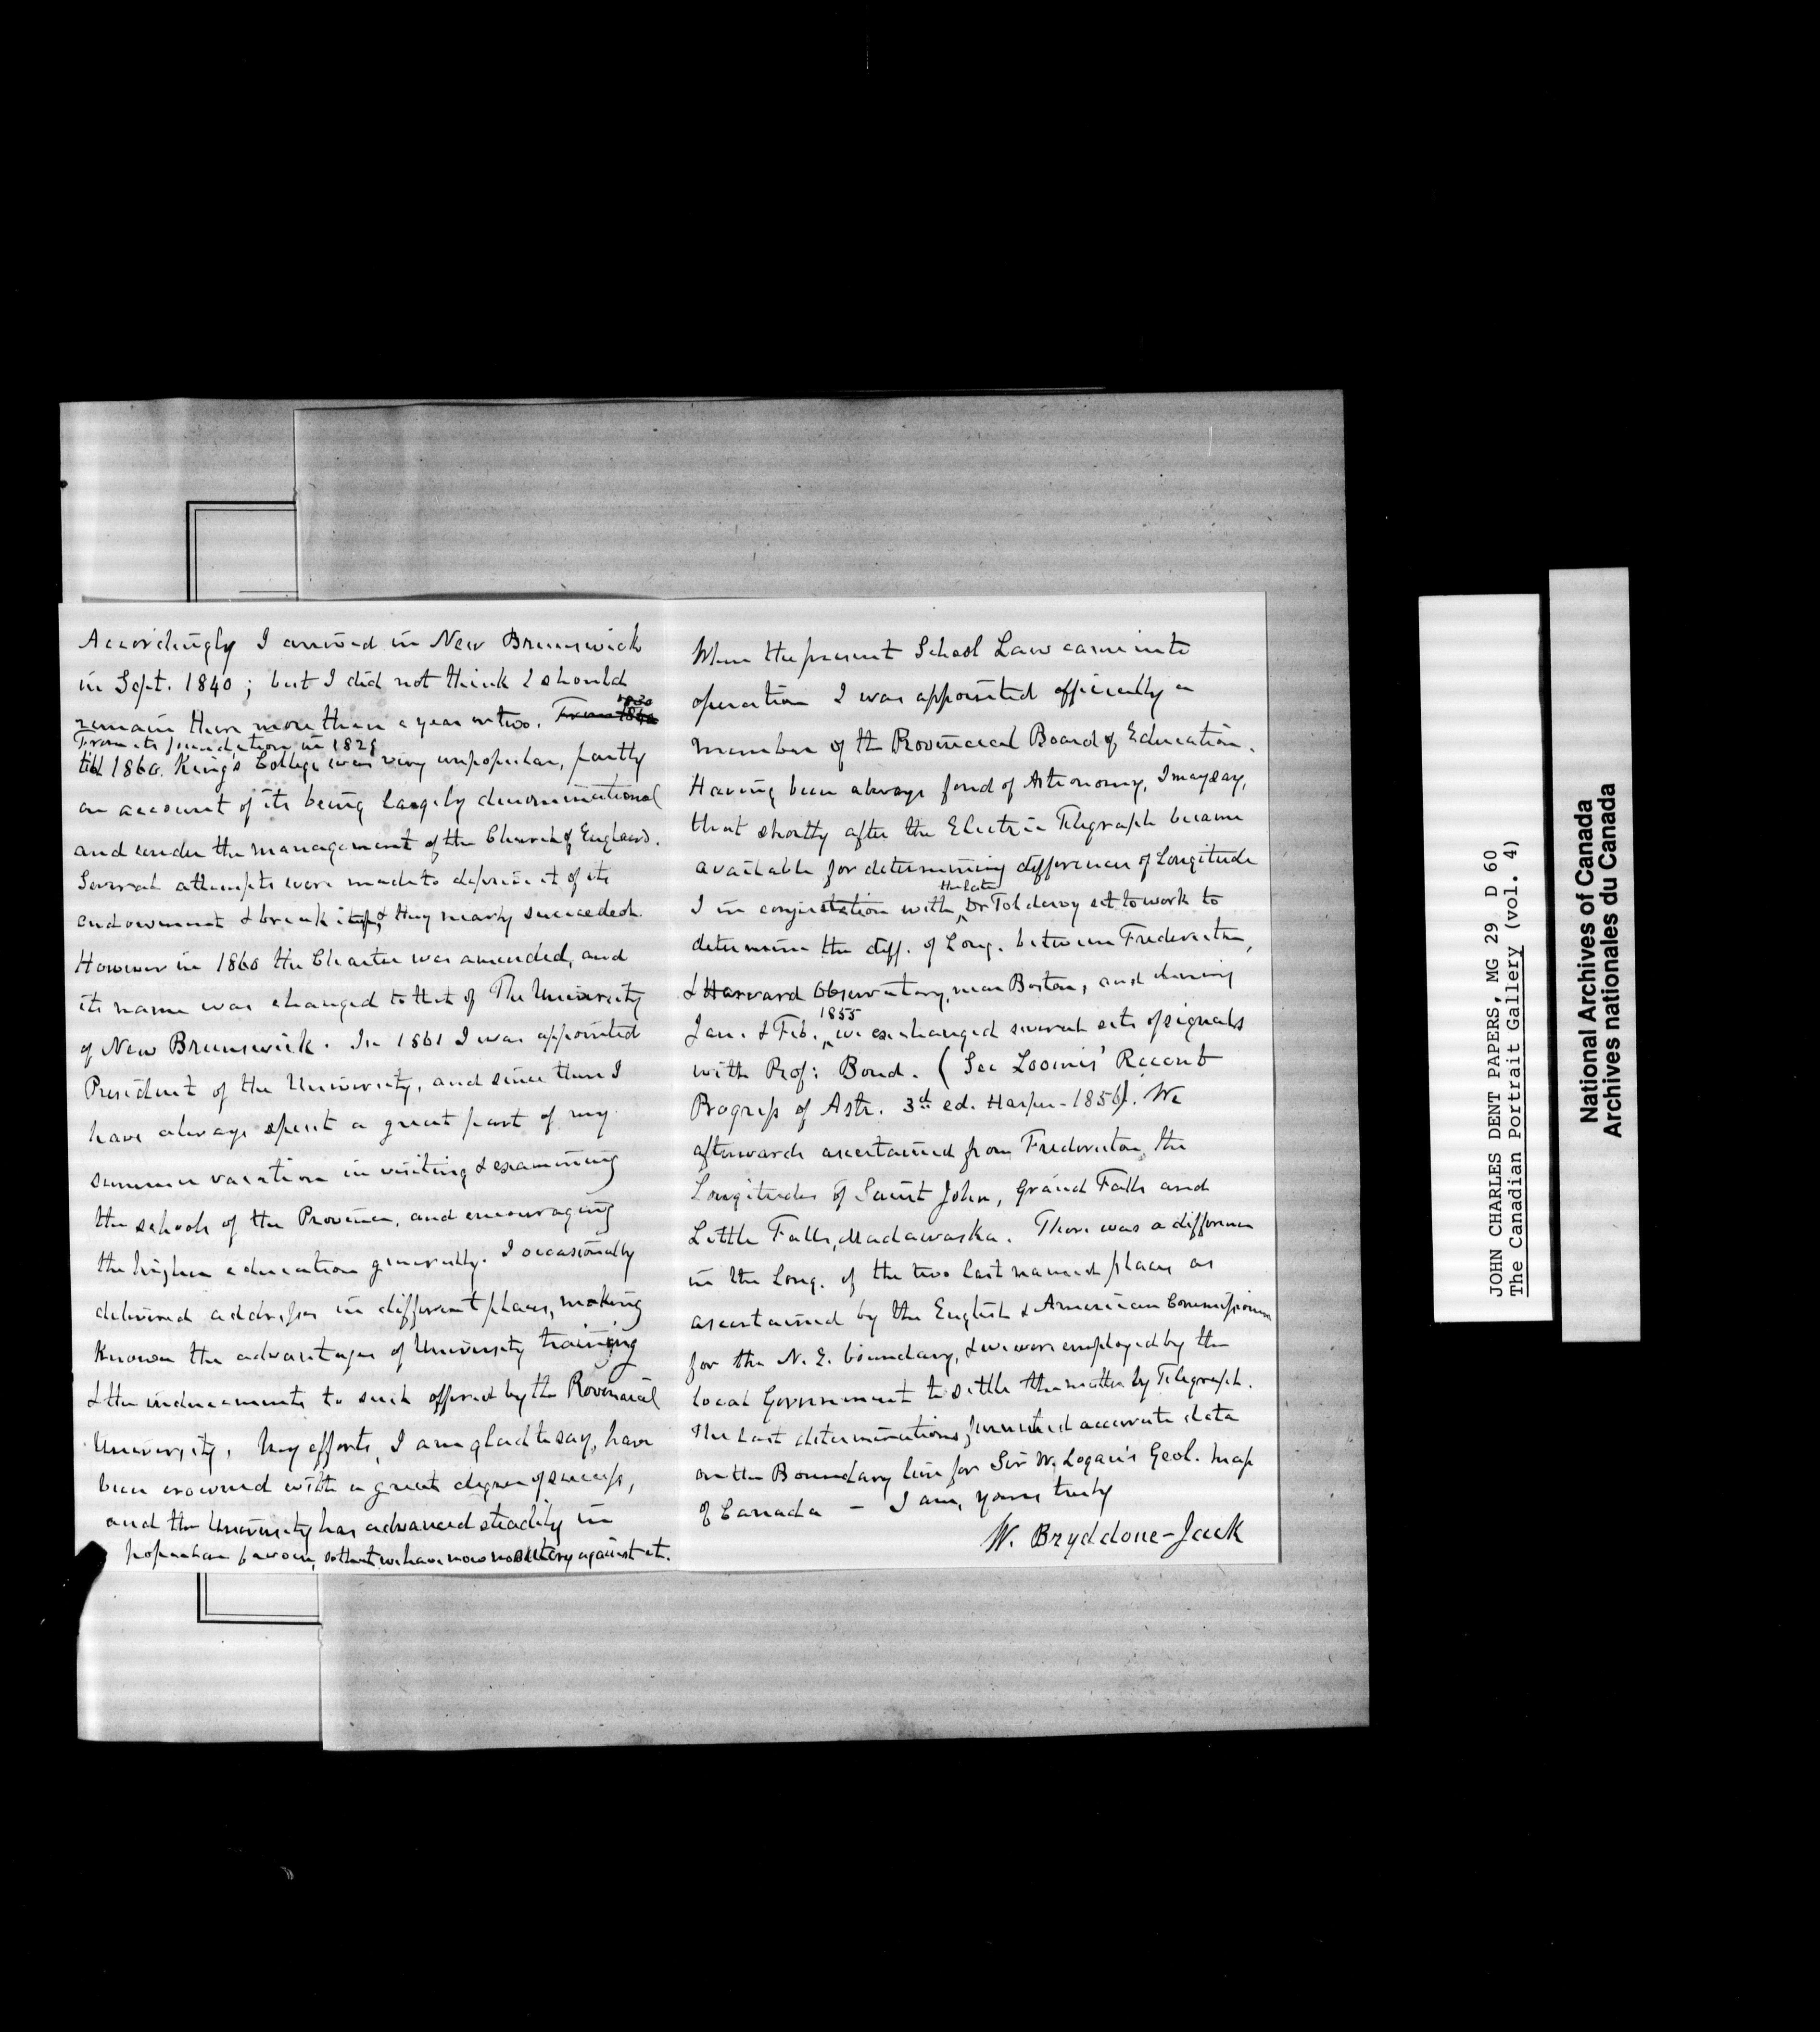 Accordingly I arrived in New Brunswick
in Sept. 1840 ; but I did not think I should
remain there more than a year or two. From 1840 1830
From its foundation in 1829
till 1860. King's College was very unpopular, partly
on account of its being largely denominational
and under the management of the Church of England.
Several attempts were made to deprive it of its
endowment & break it up, & they nearly succeeded.
However in 1860 the Charter was amended, and
its name was changed to that of The University
of New Brunswick. In 1861 I was appointed
President of the University, and since then I
have always spent a great part of my
summer vacation in visiting & examining
the schools of the Province, and encouraging
the higher education generally. I occasionally
delivered addresses in different places, making
known the advantages of University training
& the inducements to such offered by the Provincial
University. My efforts, I am glad to say, have
been crowned with a great degree of success,
and the University has advanced steadily in
popular favour, so that we have now no outcry against it.
When the present School Law came into
operation I was appointed officially a
member of the Provincial Board of Education.
Having been always fond of Astronomy, I may say,
that shortly after the Electric Telegraph became
available for determining differences of Longitude
the late
I in conjunction with Dr Toldervy set to work to
determine the diff. of Long. between Fredericton,
& Harvard Observatory, near Boston, and during
1855
Jan. & Feb. we exchanged several sets of signals
with Prof: Bond. (See Loomis' Recent
Progress of Astr. 3d ed. Harper - 1856). We
afterwards ascertained from Fredericton the
Longitudes of Saint John, Grand Falls and
Little Falls, Madawaska. There was a difference
in the Long. of the two last named places as
ascertained by the English & American Commissioners
for the N. E. boundary, & we were employed by the
local Government to settle the matter by Telegraph.
The last determinations furnished accurate data
on the Boundary line for Sir W. Logan's Geol. Map
of Canada — I am, yours truly
W. Brydone-Jack
JOHN CHARLES DENT PAPERS, MG 29 D 60
The Canadian Portrait Gallery (vol. 4)
National Archives of Canada
Archives nationales du Canada